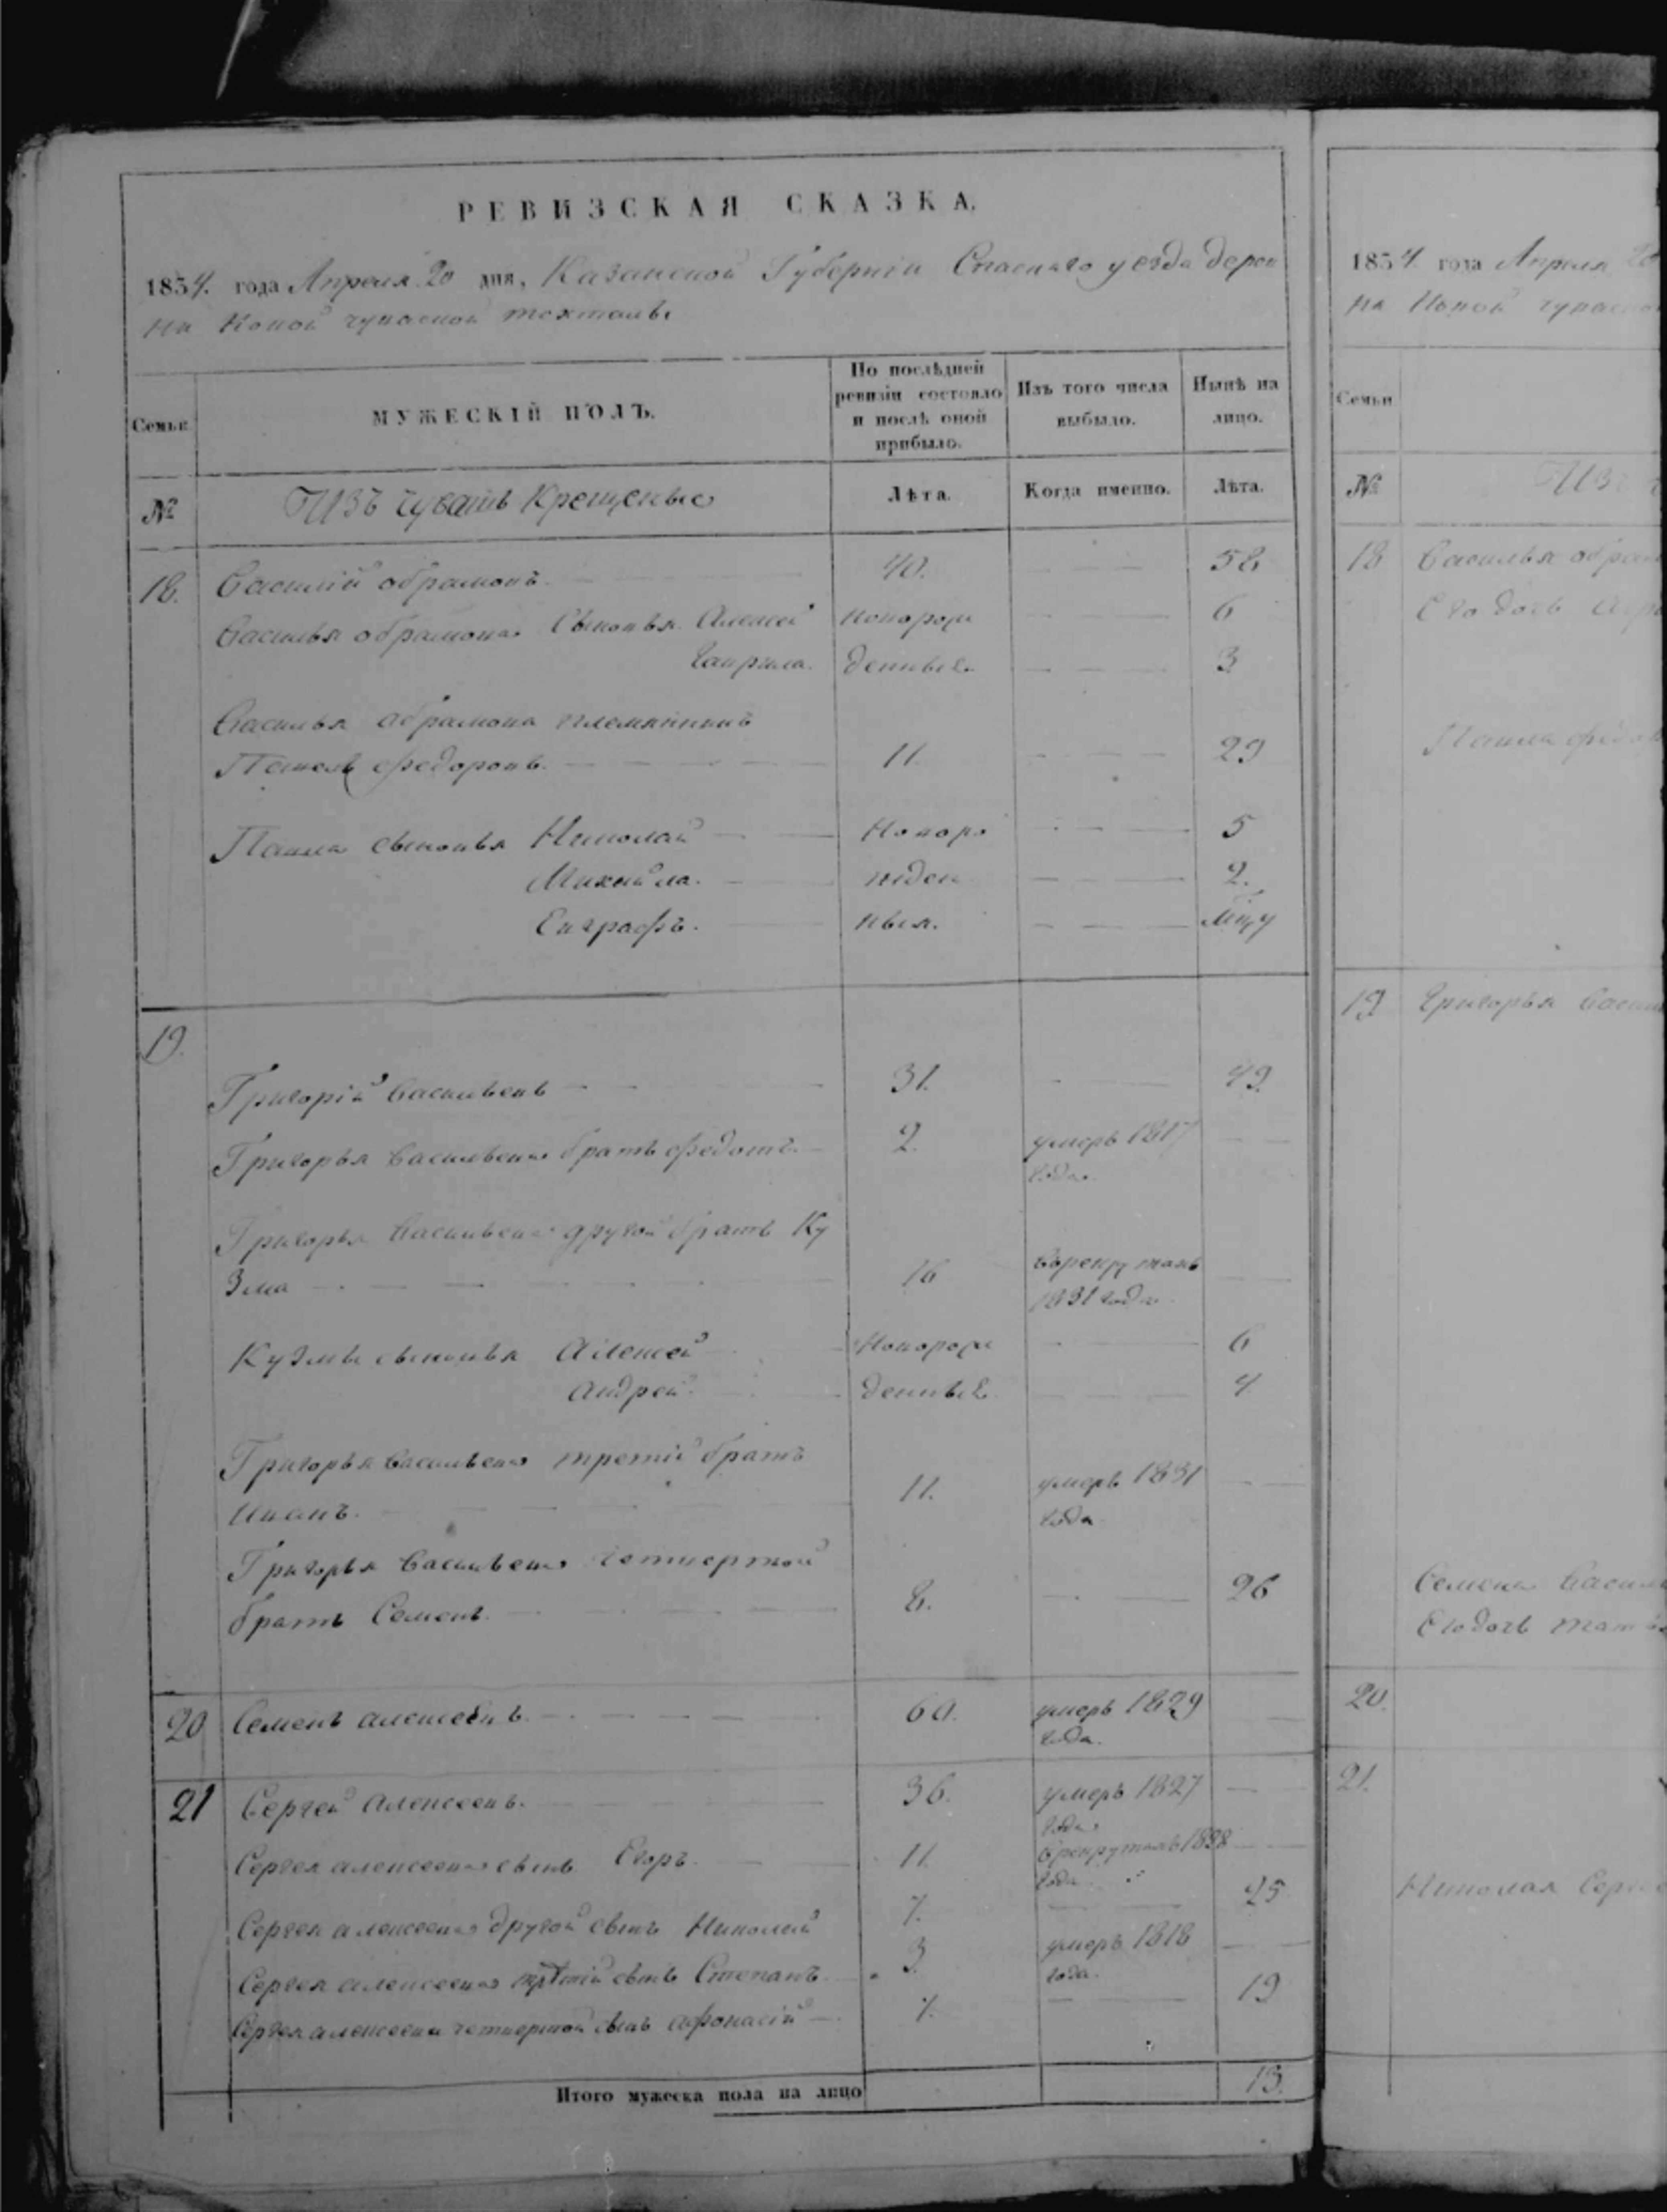 РЕВИЗСКАЯ СКАЗКА.
1834. года Апреля 20 дня, Казанской Губернiи Спаскаго уезда дерев
ни Новой чуваской
Семьи.
МУЖЕСКIЙ ПОЛЪ.
По послѣдней ревизiи состояло и послѣ оной прибыло.
Изъ того числа выбыло.
Нынѣ на лицо.
№
ИЗЪ чувашъ Крещеные
Лѣта.
Когда именно.
Лѣта.
18. Василiй обрамовъ. 40. 58
Василья обрамова Сыновья Алексей новорож 6
Гаврила. денныя 3
Василья абрамова племянникъ
Павелъ федоровъ. 11. 29
Павла сыновья Николай новоро 5
Михайла. жден 2.
Евграфъ. ныя. мцу
19.
Григорiй Васильевъ 31. 49.
Григорья Васильева братъ федотъ. 2. умеръ 1817
года.
Григорья Васильева другой братъ Ку
зма 16 Врекруты
1831 года.
Кузмы сыновья Алексей новорож 6
Андрей. денныя 4
Григорья Васильева третiй братъ
Иванъ. 11. умеръ 1831
года
Григорья Васильева четвертой
братъ Семенъ. 8. 26
20 Семенъ алексеевъ. 60. умеръ 1829
года.
21 Сергей алексеевъ. 36. умеръ 1827
года
Сергея алексеева сынъ Егоръ. 11. 1828
года.
Сергея алексеева другой сынъ Николай 7. 25
Сергея алексеева третiй сынъ Степанъ. 3. умеръ 1818
года.
Сергея алексеева четвертой сынъ афонасiй 1. 19
Итого мужеска пола на лицо 13.
1834 года Апреля 20
на Новой чуваской
Семьи
№
ИЗЪ
18 Василья обрам
Его дочь
Павла федо
19 Григорья Васил
Семена Василь
Его дочь
20.
21.
Николая Серге